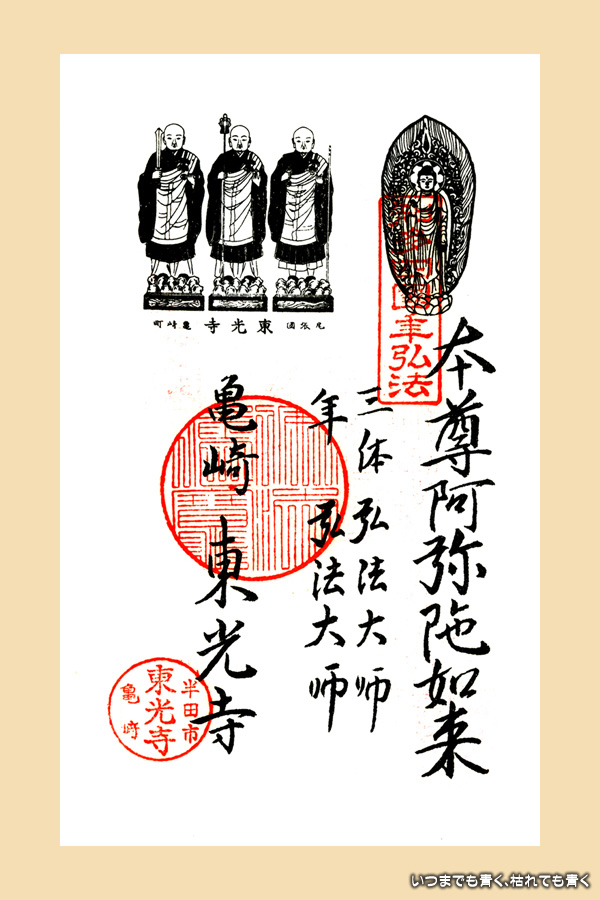 尾張国 東光寺 亀崎町
年弘法
本尊阿弥陀如来
三体弘法大师
年弘法大师
亀崎東光寺
半田市
東光寺
亀崎
いつまでも青く、枯れても青く